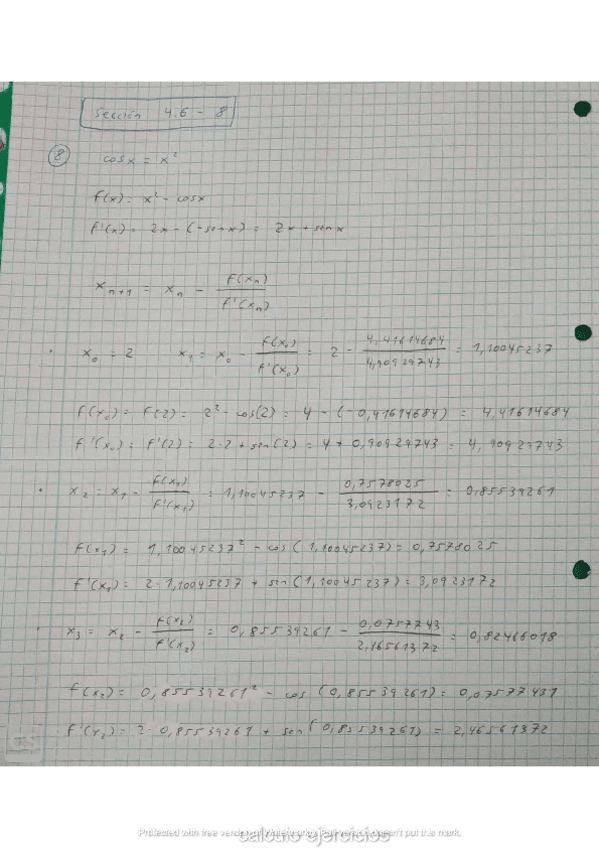 Sección 4.6 - 8
8 cos x = x²
f(x) = x² - cos x
f'(x) = 2x - (-sen x) = 2x + sen x
xₙ₊₁ = xₙ - f(xₙ) / f'(xₙ)
· x₀ = 2 x₁ = x₀ - f(x₀) / f'(x₀) = 2 - 4,41614684 / 4,90929743 = 1,10045237
f(x₀) = f(2) = 2² - cos(2) = 4 - (-0,41614684) = 4,41614684
f'(x₀) = f'(2) = 2·2 + sen(2) = 4 + 0,90929743 = 4,90929743
· x₂ = x₁ - f(x₁) / f'(x₁) = 1,10045237 - 0,7578025 / 3,0923172 = 0,85539261
f(x₁) = 1,10045237² - cos(1,10045237) = 0,7578025
f'(x₁) = 2·1,10045237 + sin(1,10045237) = 3,0923172
· x₃ = x₂ - f(x₂) / f'(x₂) = 0,85539261 - / 2,46561372 = 0,82466018
f(x₂) = 0,85539261² - cos(0,85539261) =
f'(x₂) = 2·0,85539261 + sen(0,85539261) = 2,46561372
Protected with free version of Watermarkly. Full version doesn't put this mark.
calculo ejercicios